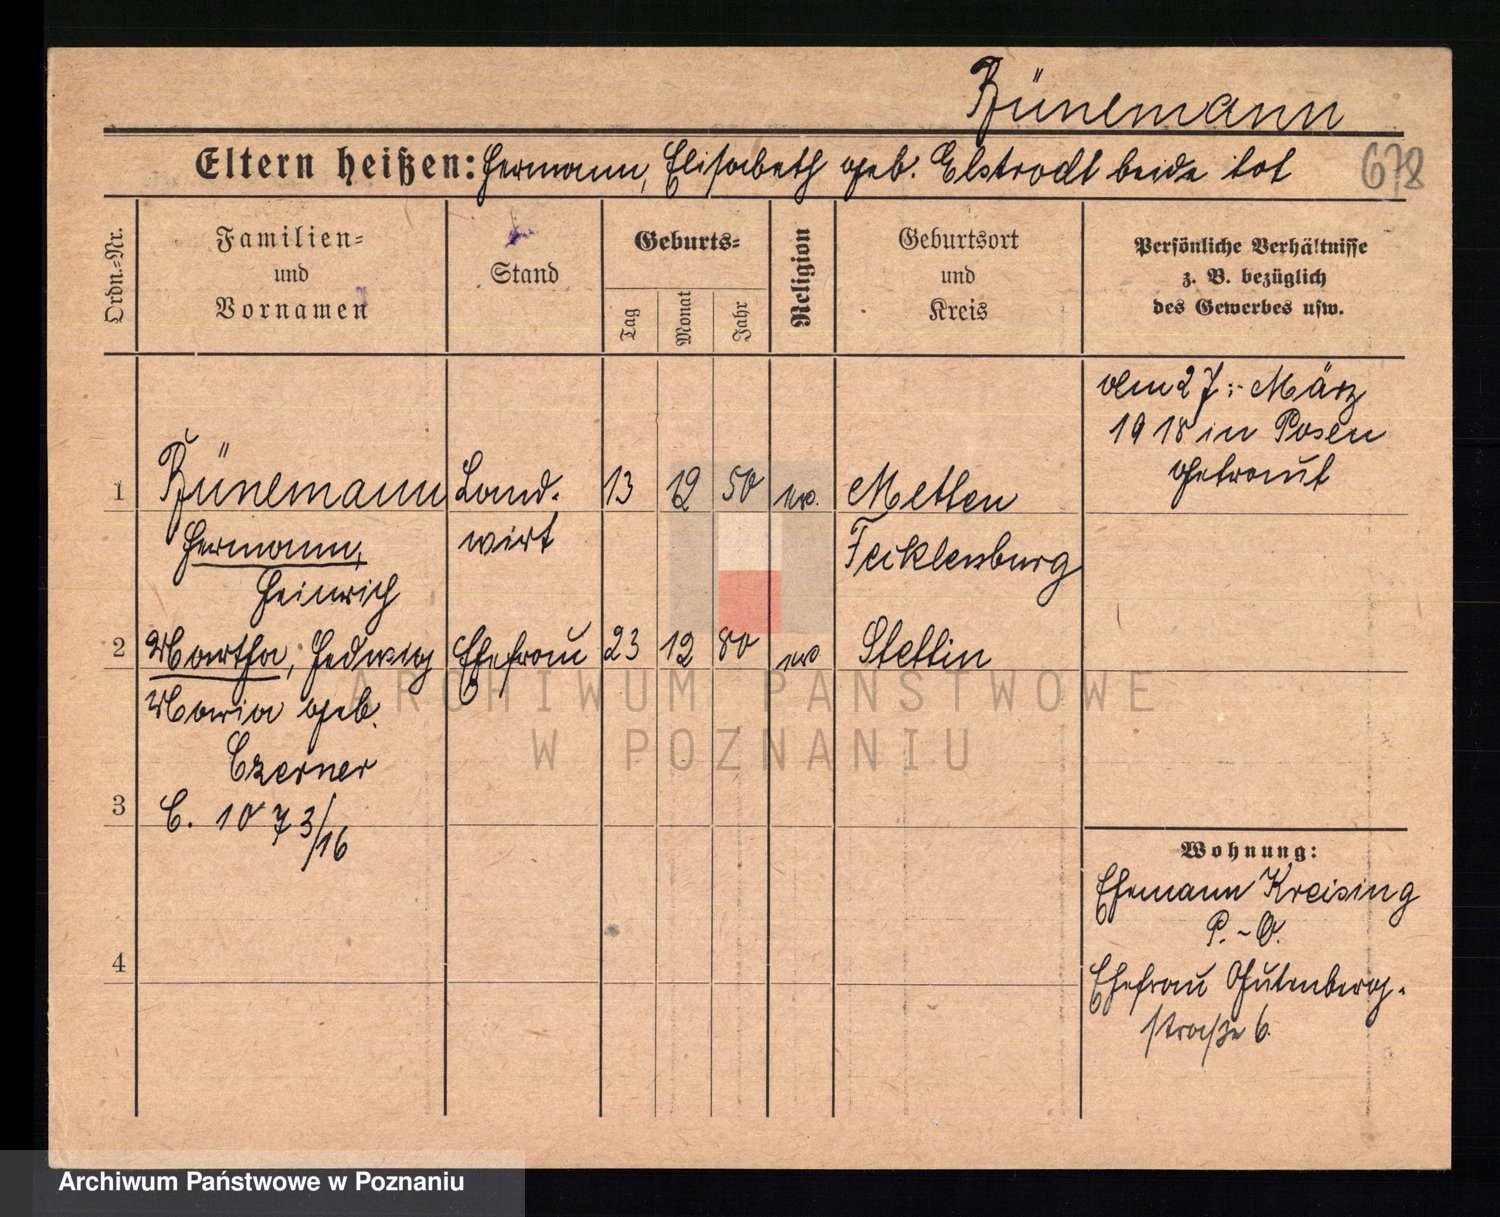 Bünemann
Eltern heißen: Hermann, Elisabeth geb. Elstrodt beide tot
678
Ordn.=Nr.
Familien=
und
Vornamen
Stand
Geburts=
Tag
Monat
Jahr
Religion
Geburtsort
und
Kreis
Persönliche Verhältnisse
z. B. bezüglich
des Gewerbes usw.
am 27. März
1918 in Posen
getraut
1 Bünemann Land- 13 12 50 ev. Metten
Hermann, wirt Tecklenburg
Heinrich
2 Martha, Hedwig Ehefrau 23 12 80 ev Stettin
Maria geb.
Czerner
3 C. 1073/16
4
Wohnung:
Ehemann Kreising
P.-O.
Ehefrau Gutenberg-
straße 6.
ARCHIWUM PAŃSTWOWE
W POZNANIU
Archiwum Państwowe w Poznaniu